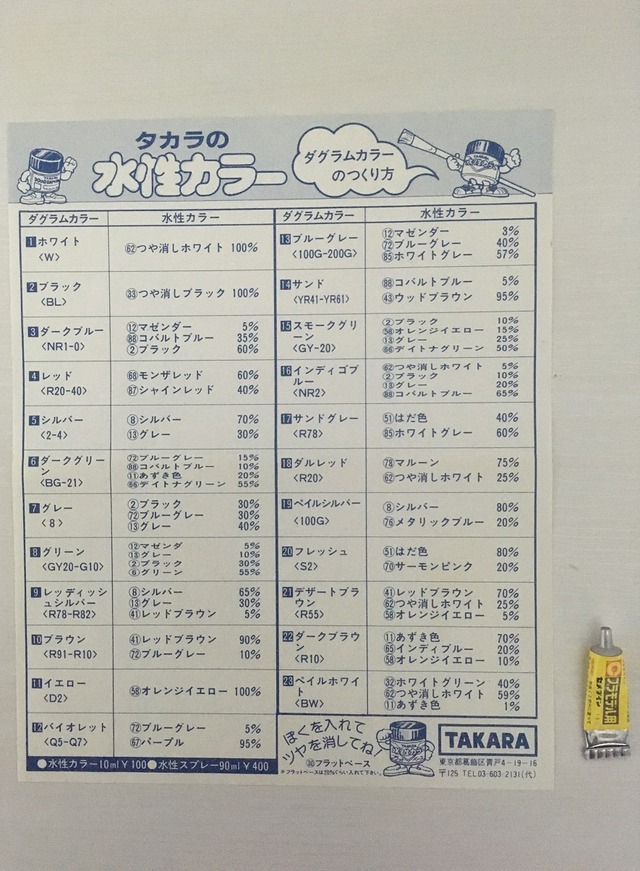 タカラの
水性カラー
ダグラムカラー
のつくり方
ダグラムカラー 水性カラー
1 ホワイト
<W>
62つや消しホワイト 100%
2 ブラック
<BL>
33つや消しブラック 100%
3 ダークブルー
<NR1-0>
⑫マゼンダー 5%
88コバルトブルー 35%
②ブラック 60%
4 レッド
<R20-40>
68モンザレッド 60%
87シャインレッド 40%
5 シルバー
<2-4>
⑧シルバー 70%
⑬グレー 30%
6 ダークグリー
ン
<BG-21>
72ブルーグレー 15%
88コバルトブルー 10%
⑪あずき色 20%
66デイトナグリーン 55%
7 グレー
<8>
②ブラック 30%
72ブルーグレー 30%
⑬グレー 40%
8 グリーン
<GY20-G10>
⑫マゼンダ 5%
⑬グレー 10%
②ブラック 30%
⑥グリーン 55%
9 レッディッシ
ュシルバー
<R78-R82>
⑧シルバー 65%
⑬グレー 30%
㊶レッドブラウン 5%
10 ブラウン
<R91-R10>
㊶レッドブラウン 90%
72ブルーグレー 10%
11 イエロー
<D2>
58オレンジイエロー 100%
12 バイオレット
<Q5-Q7>
72ブルーグレー 5%
67パープル 95%
●水性カラー10ml￥100●水性スプレー90ml￥400
ダグラムカラー 水性カラー
13 ブルーグレー
<100G-200G>
⑫マゼンダー 3%
72ブルーグレー 40%
85ホワイトグレー 57%
14 サンド
<YR41-YR61>
88コバルトブルー 5%
㊸ウッドブラウン 95%
15 スモークグリ
ーン
<GY-20>
②ブラック 10%
58オレンジイエロー 15%
⑬グレー 25%
66デイトナグリーン 50%
16 インディゴブ
ルー
<NR2>
62つや消しホワイト 5%
②ブラック 10%
⑬グレー 20%
88コバルトブルー 65%
17 サンドグレー
<R78>
51はだ色 40%
85ホワイトグレー 60%
18 ダルレッド
<R20>
78マルーン 75%
62つや消しホワイト 25%
19 ペイルシルバー
<100G>
⑧シルバー 80%
76メタリックブルー 20%
20 フレッシュ
<S2>
51はだ色 80%
70サーモンピンク 20%
21 デザートブラ
ウン
<R55>
㊶レッドブラウン 70%
62つや消しホワイト 25%
58オレンジイエロー 5%
22 ダークブラウ
ン
<R10>
⑪あずき色 70%
65インディブルー 20%
58オレンジイエロー 10%
23 ペイルホワイ
ト
<BW>
㉜ホワイトグリーン 40%
62つや消しホワイト 59%
⑪あずき色 1%
ぼくを入れて
ツヤを消してね!
㉚フラットベース
*フラットベースは20%ぐらい入れて下さい。
TAKARA
東京都葛飾区青戸4-19-16
〒125 TEL.03-603-2131(代)
プラモデル用
セメダイン